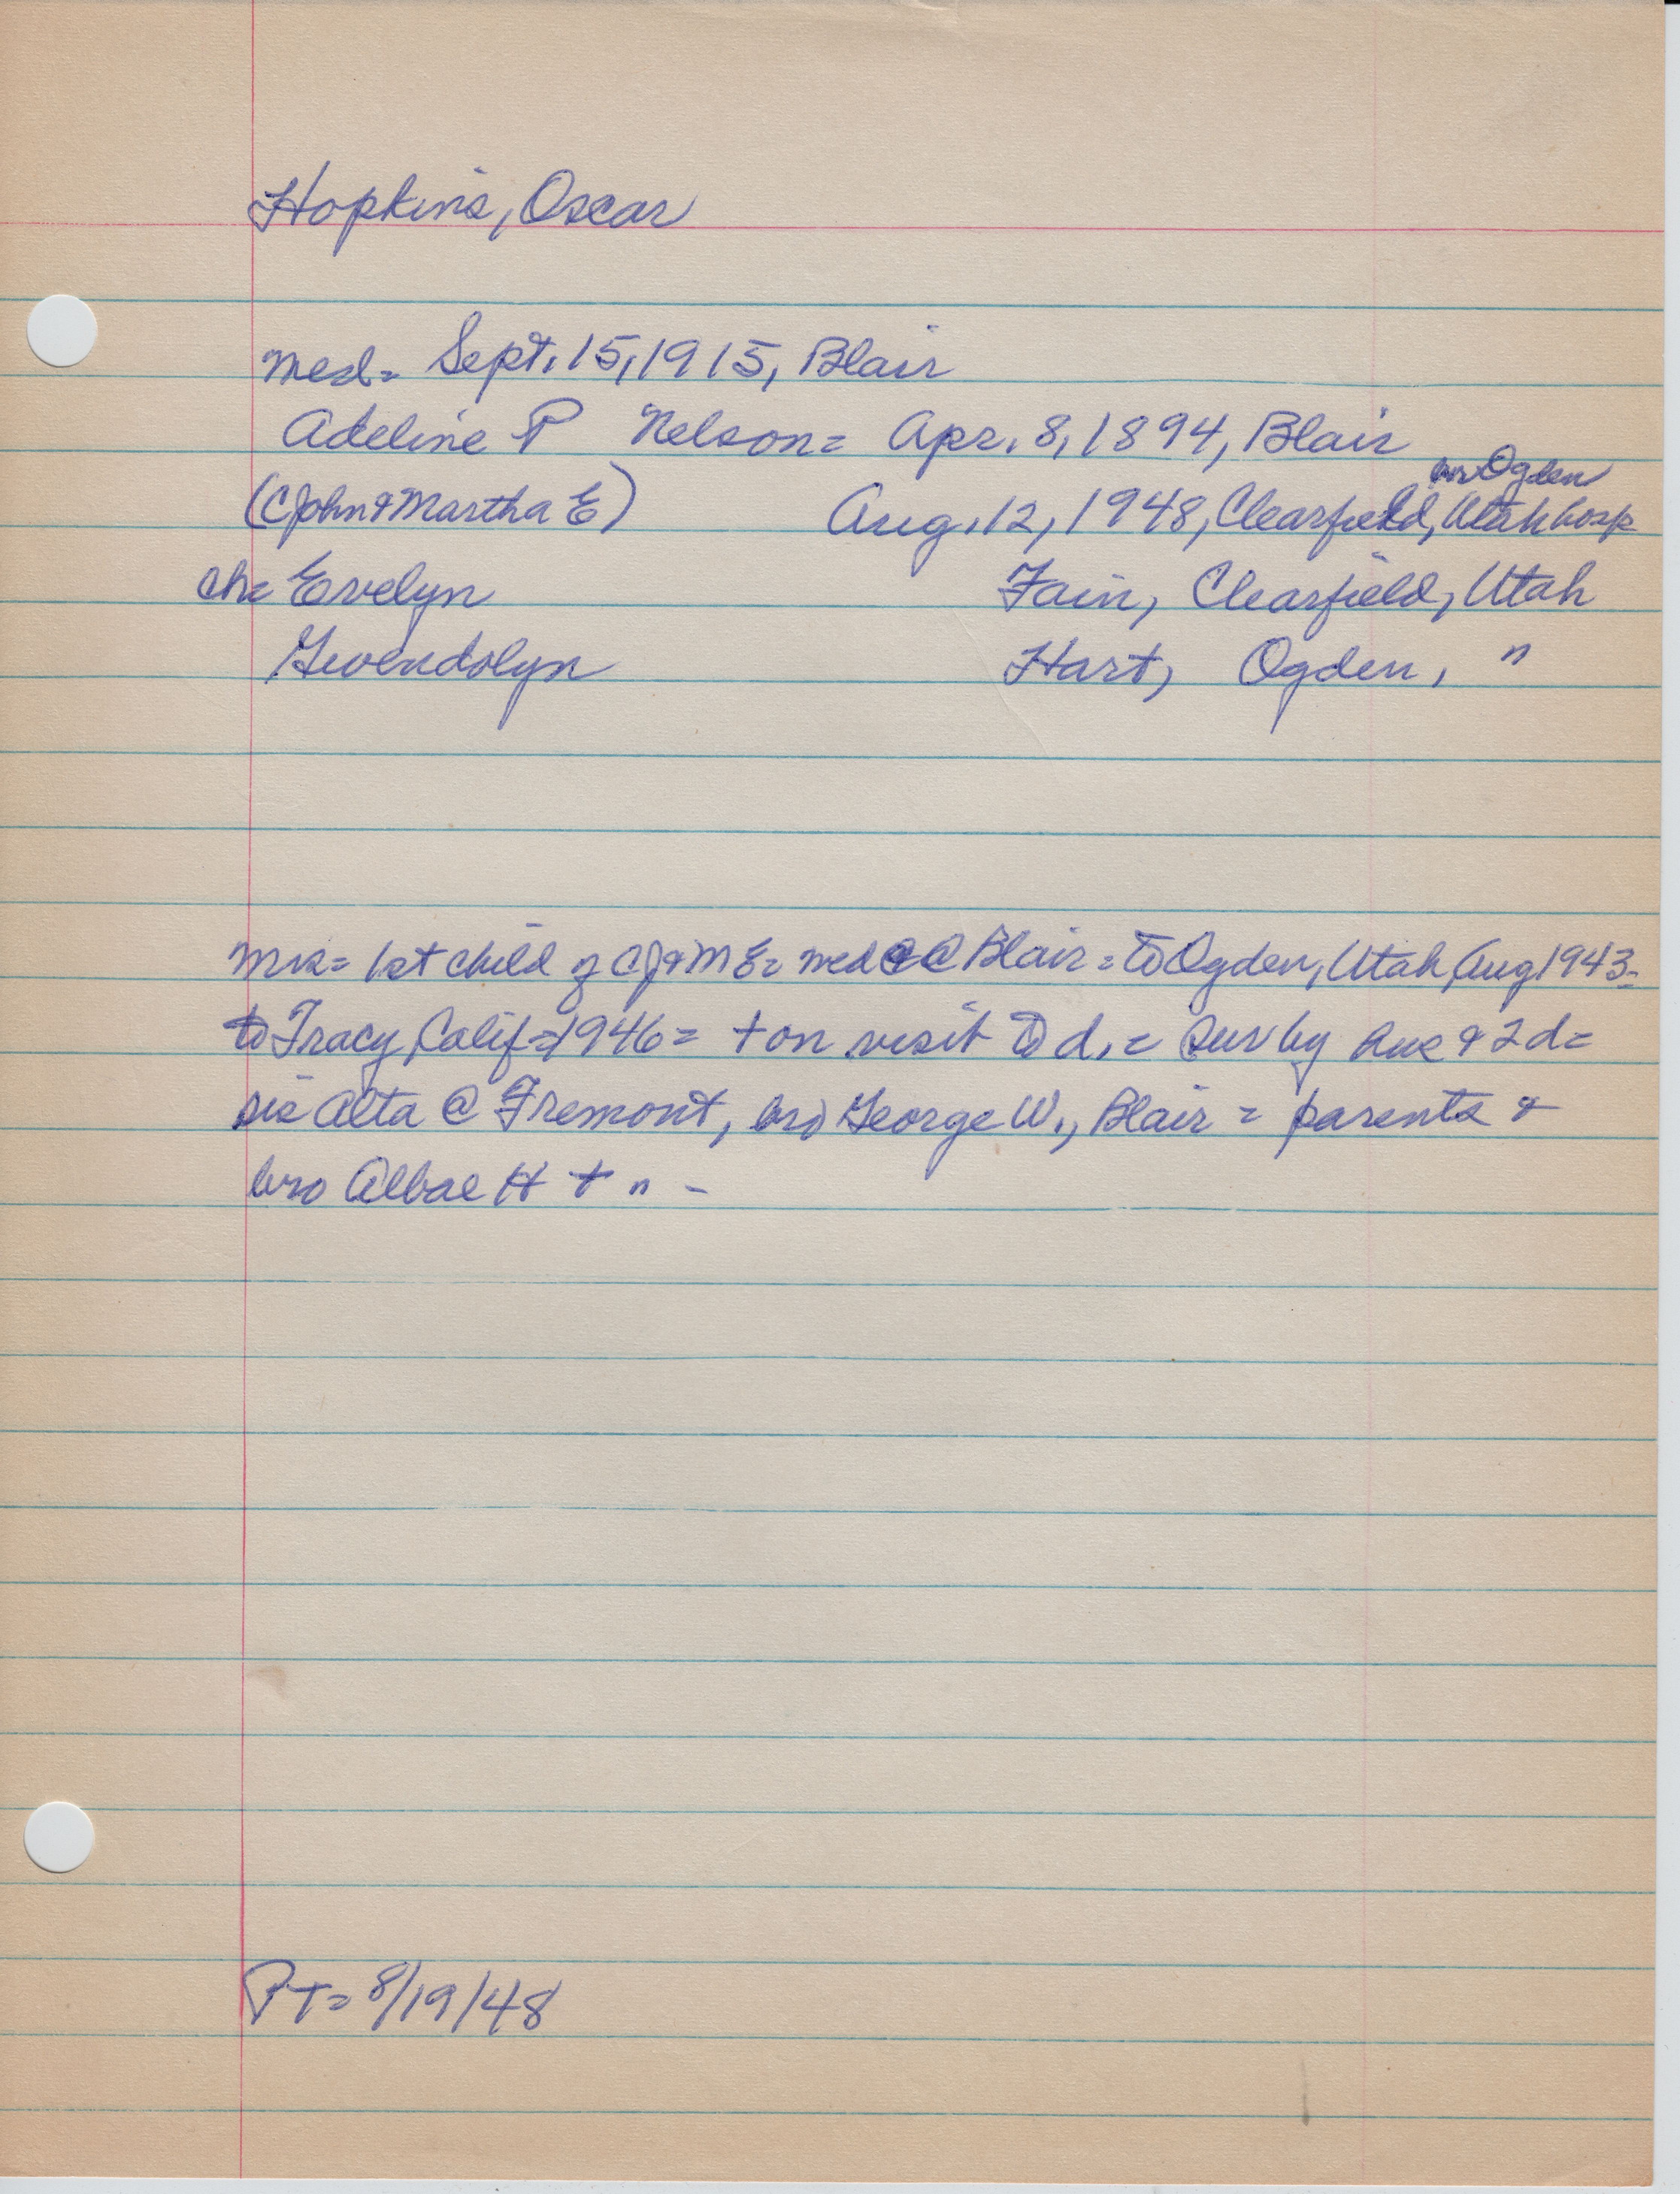 Hopkins, Oscar
med= Sept. 15, 1915, Blair
Adeline P Nelson= Apr. 8, 1894, Blair
or Ogden
(CJohn & Martha E) Aug. 12, 1948, Clearfield, Utah hosp
ch= Evelyn Fain, Clearfield, Utah
Gwendolyn Hart, Ogden, "
Mrs= 1st child of CJ & M E= med @ Blair = to Ogden, Utah, Aug 1943-
to Tracy, Calif = 1946 = + on visit to d. = Sur by & 2 d=
sis Alta @ Fremont, bro George W., Blair = parents &
bro H + " -
PT= 8/19/48